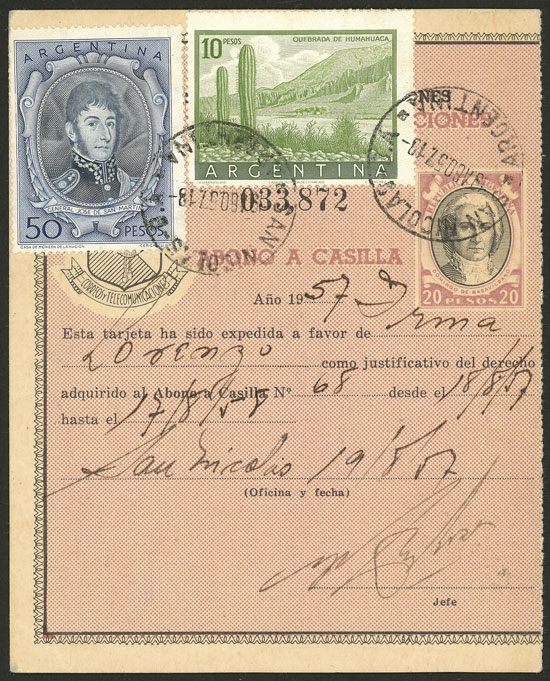 ARGENTINA
GENERAL JOSÉ DE SAN MARTIN
50 PESOS
CASA DE MONEDA DE LA NACION
10 PESOS
QUEBRADA DE HUMAHUACA
ARGENTINA
ONES
CIONES
SAN NICOLAS
ARGENTINA
033,872
CORREOS Y TELECOMUNICACIONES
ABONO A CASILLA
20 PESOS 20
Año 1957 Irma
Esta tarjeta ha sido expedida a favor de
Lorenzo como justificativo del derecho
adquirido al Abono a Casilla Nº 68 desde el 18/8/57
hasta el 17/8/58
San Nicolás 19/8/57
(Oficina y fecha)
Jefe